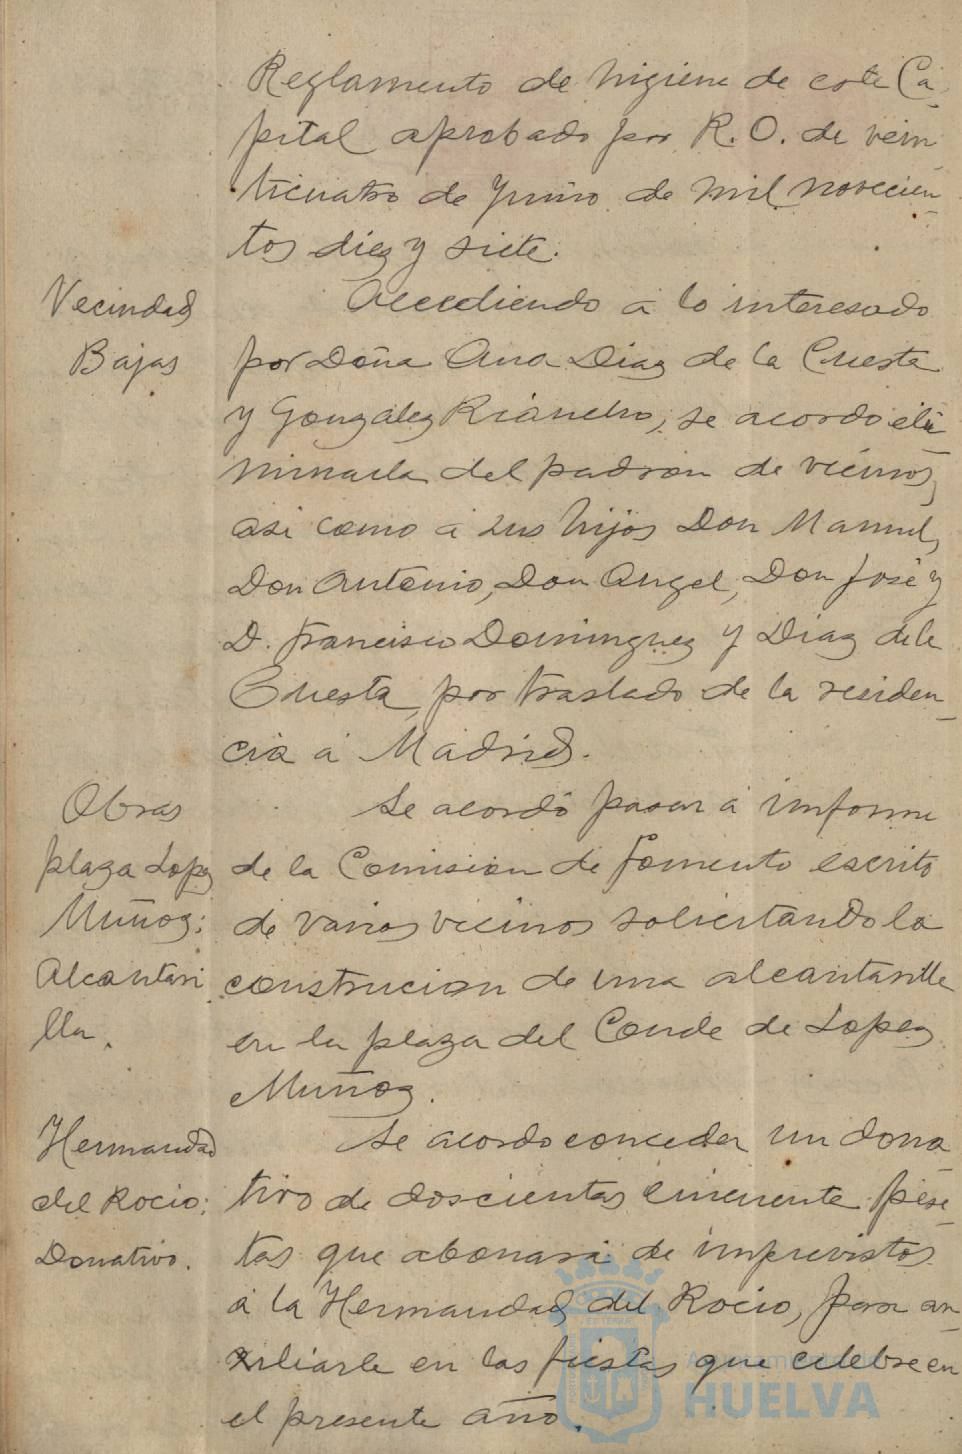 Reglamento de higiene de esta Ca-
pital aprobado por R. O. de vein
ticuatro de Junio de mil novecien-
tos diez y siete.
Vecindad
Bajas
Accediendo a lo interesado
por Doña Ana Diaz de la Cuesta
y Gonzalez Riancho, se acordo eli
minarla del padron de vecinos,
asi como a sus hijos Don Manuel,
Don Antonio, Don Angel, Don José y
D. Francisco Dominguez y Diaz de la
Cuesta, por traslado de la residen-
cia a Madrid.
Obras
plaza Lopez
Muñoz:
Alcantari
lla.
Se acordó pasar a informe
de la Comision de Fomento escrito
de varios vecinos solicitando la
construcion de una alcantarilla
en la plaza del Conde de Lopez
Muñoz.
Hermandad
del Rocio:
Donativo.
Se acordo conceder un dona-
tivo de doscientas cincuenta pese-
tas que abonará de imprevistos
a la Hermandad del Rocio, para au-
xiliarle en las fiestas que celebre en
el presente año.
Ayuntamiento de
HUELVA